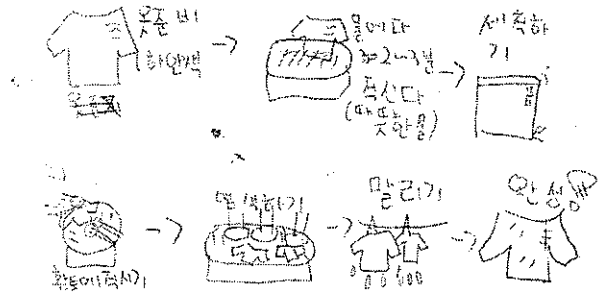 옷준비
하얀색
물에다
2~3분
적신다
(따뜻한물)
세척하
기
황토에적시기
염색하기
말리기
완성